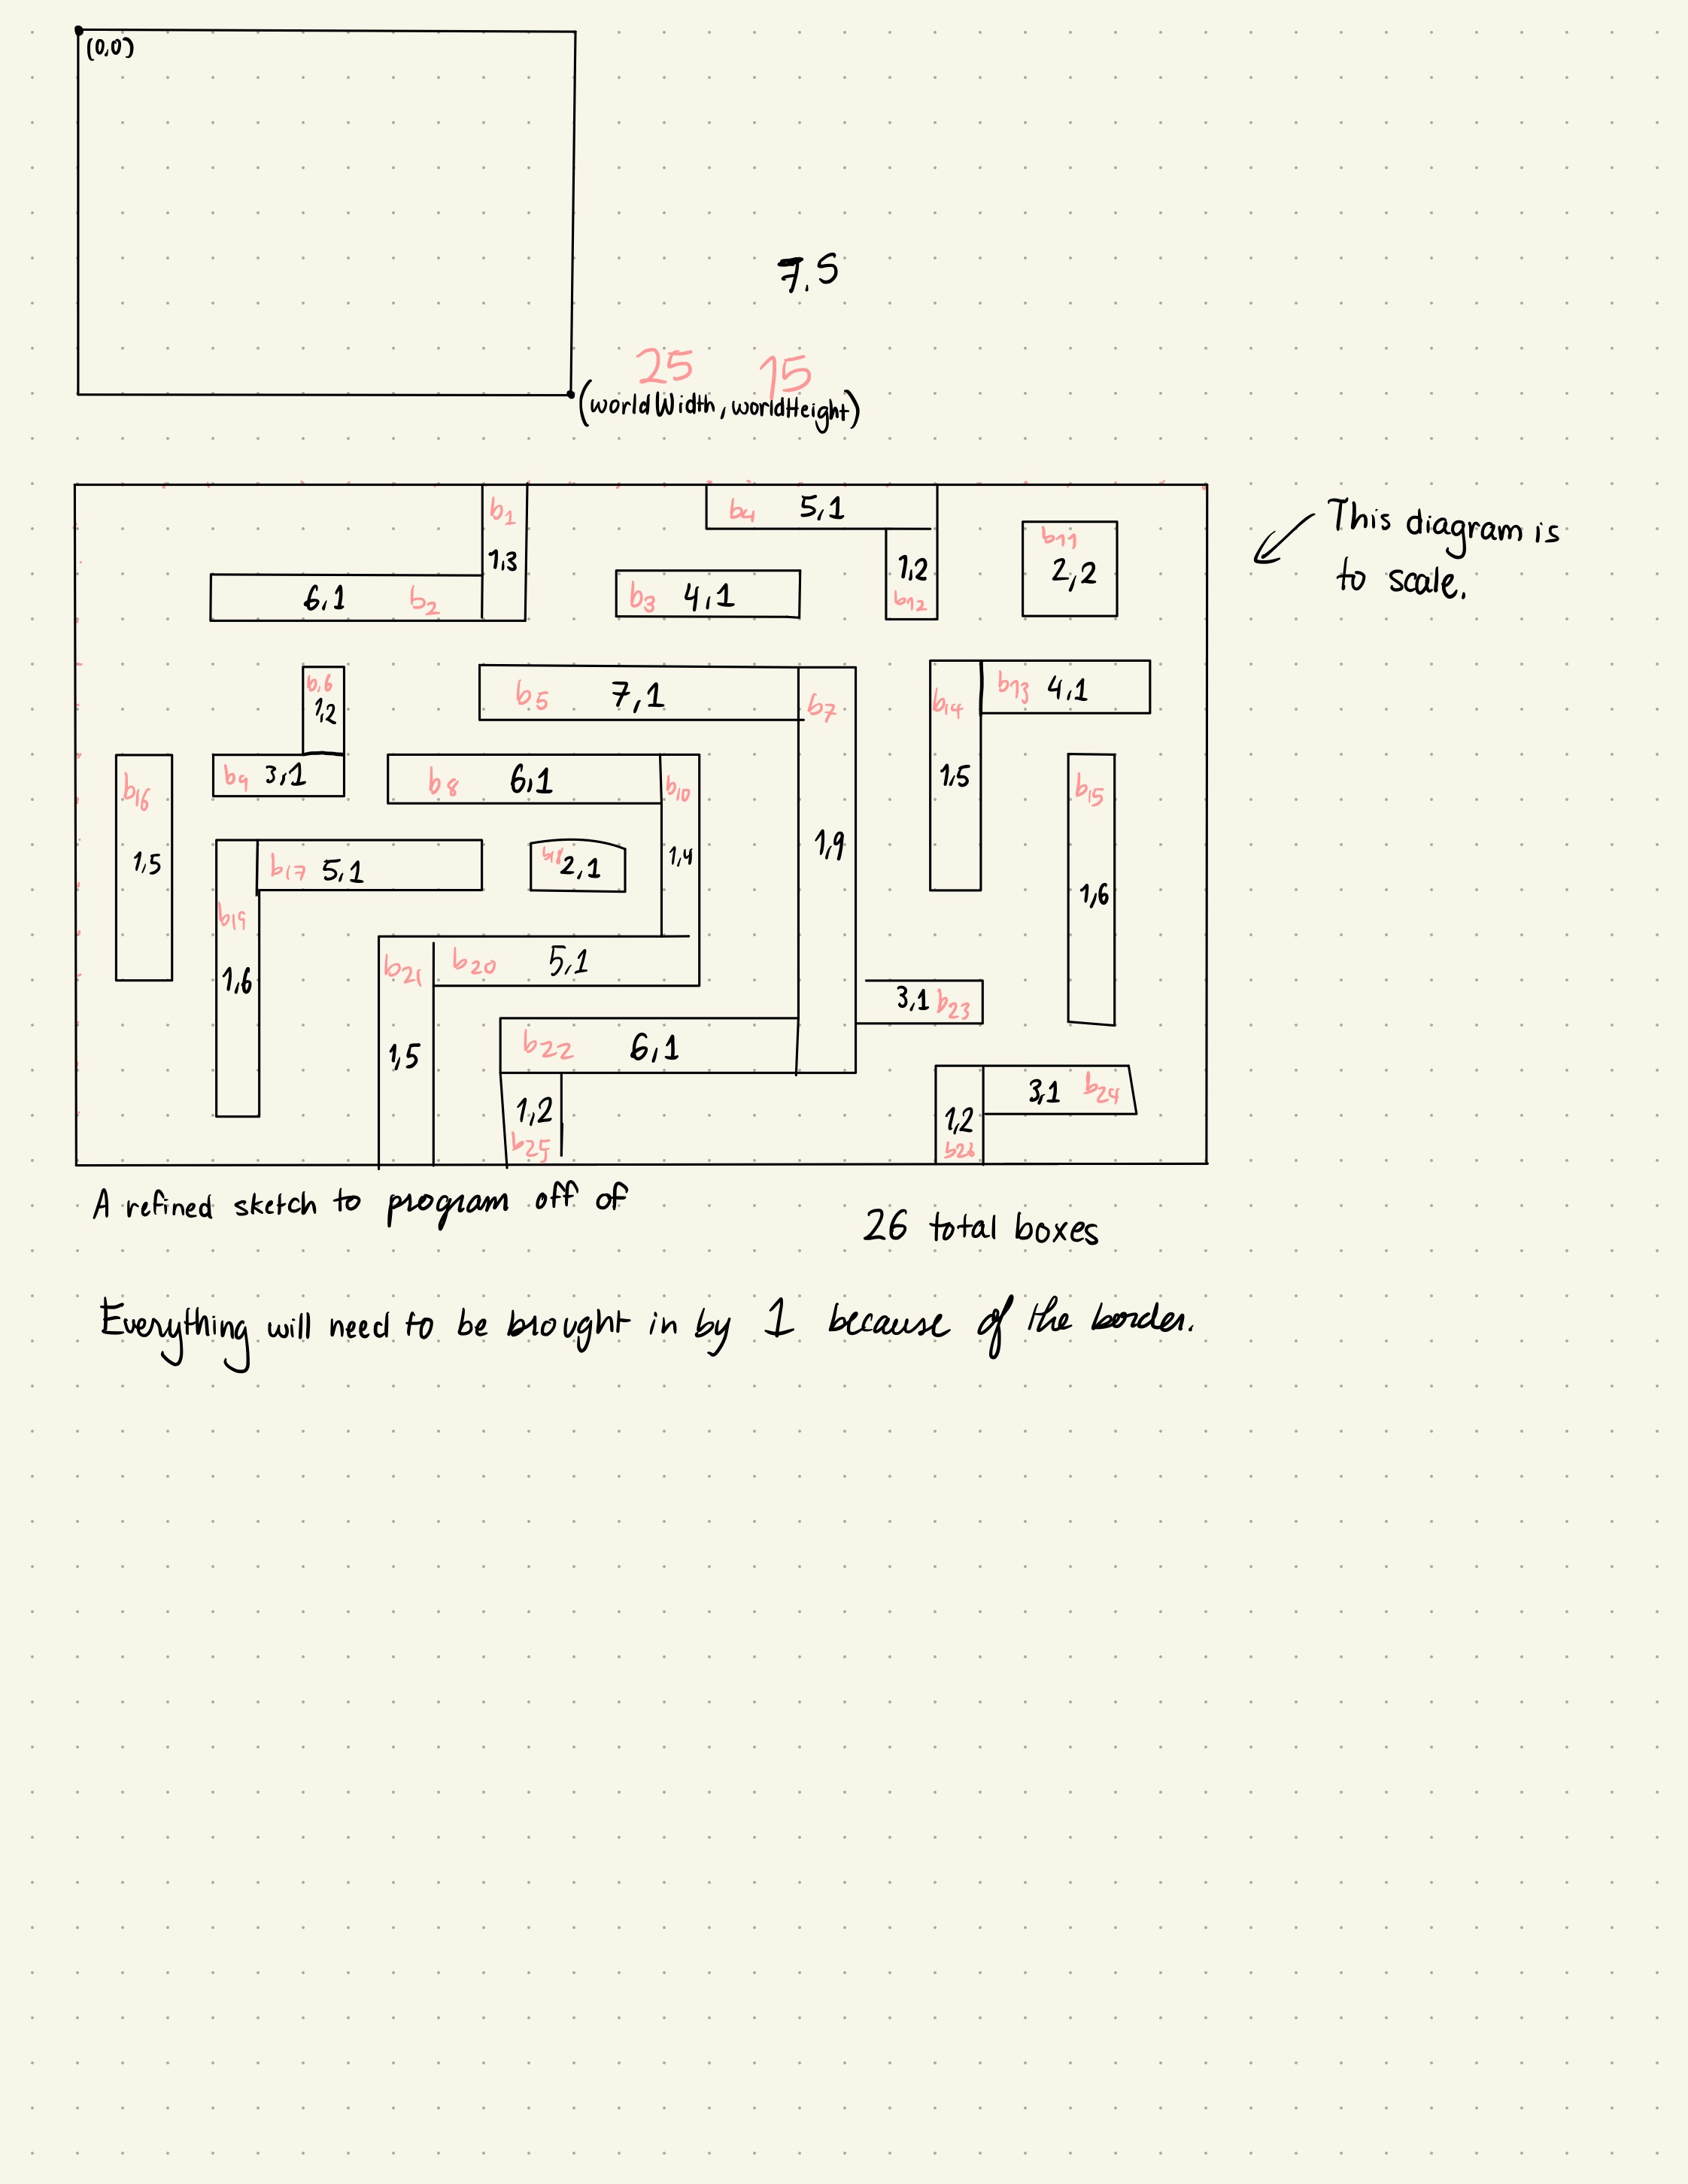 (0,0)
7.5
25 15
(worldWidth, worldHeight)
b1
1,3
b4 5,1
b11
2,2
This diagram is
to scale.
6,1 b2
b3 4,1
1,2
b12
b,6
1,2
b5 7,1
b7
1,9
b14
1,5
b13 4,1
b16
1,5
b9 3,1
b8 6,1
b10
1,4
b15
1,6
b17 5,1
b18 2,1
b19
1,6
b21
1,5
b20 5,1
3,1 b23
b22 6,1
1,2
b25
3,1 b24
1,2
b26
A refined sketch to program off of
26 total boxes
Everything will need to be brought in by 1 because of the border.